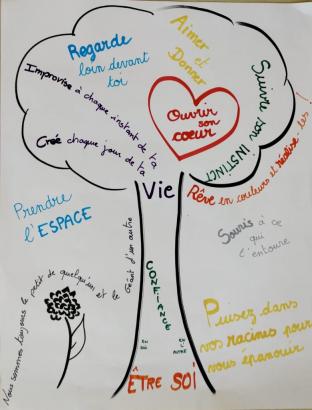 Regarde
loin devant
toi
Aimer et
Donner
Suivre son INSTINCT
Improvise à chaque instant de ta
Créé chaque jour de ta
Ouvrir
son
coeur
Vie
Rêve en couleurs et réalise-les !
Prendre
l'ESPACE
Souris à ce
qui
t'entoure
Nous sommes toujours le petit de quelqu'un et le
géant d'un autre
CONFIANCE
EN
SOI
EN
AUTRE
Puisez dans
vos racines pour
vous épanouir
ÊTRE SOI